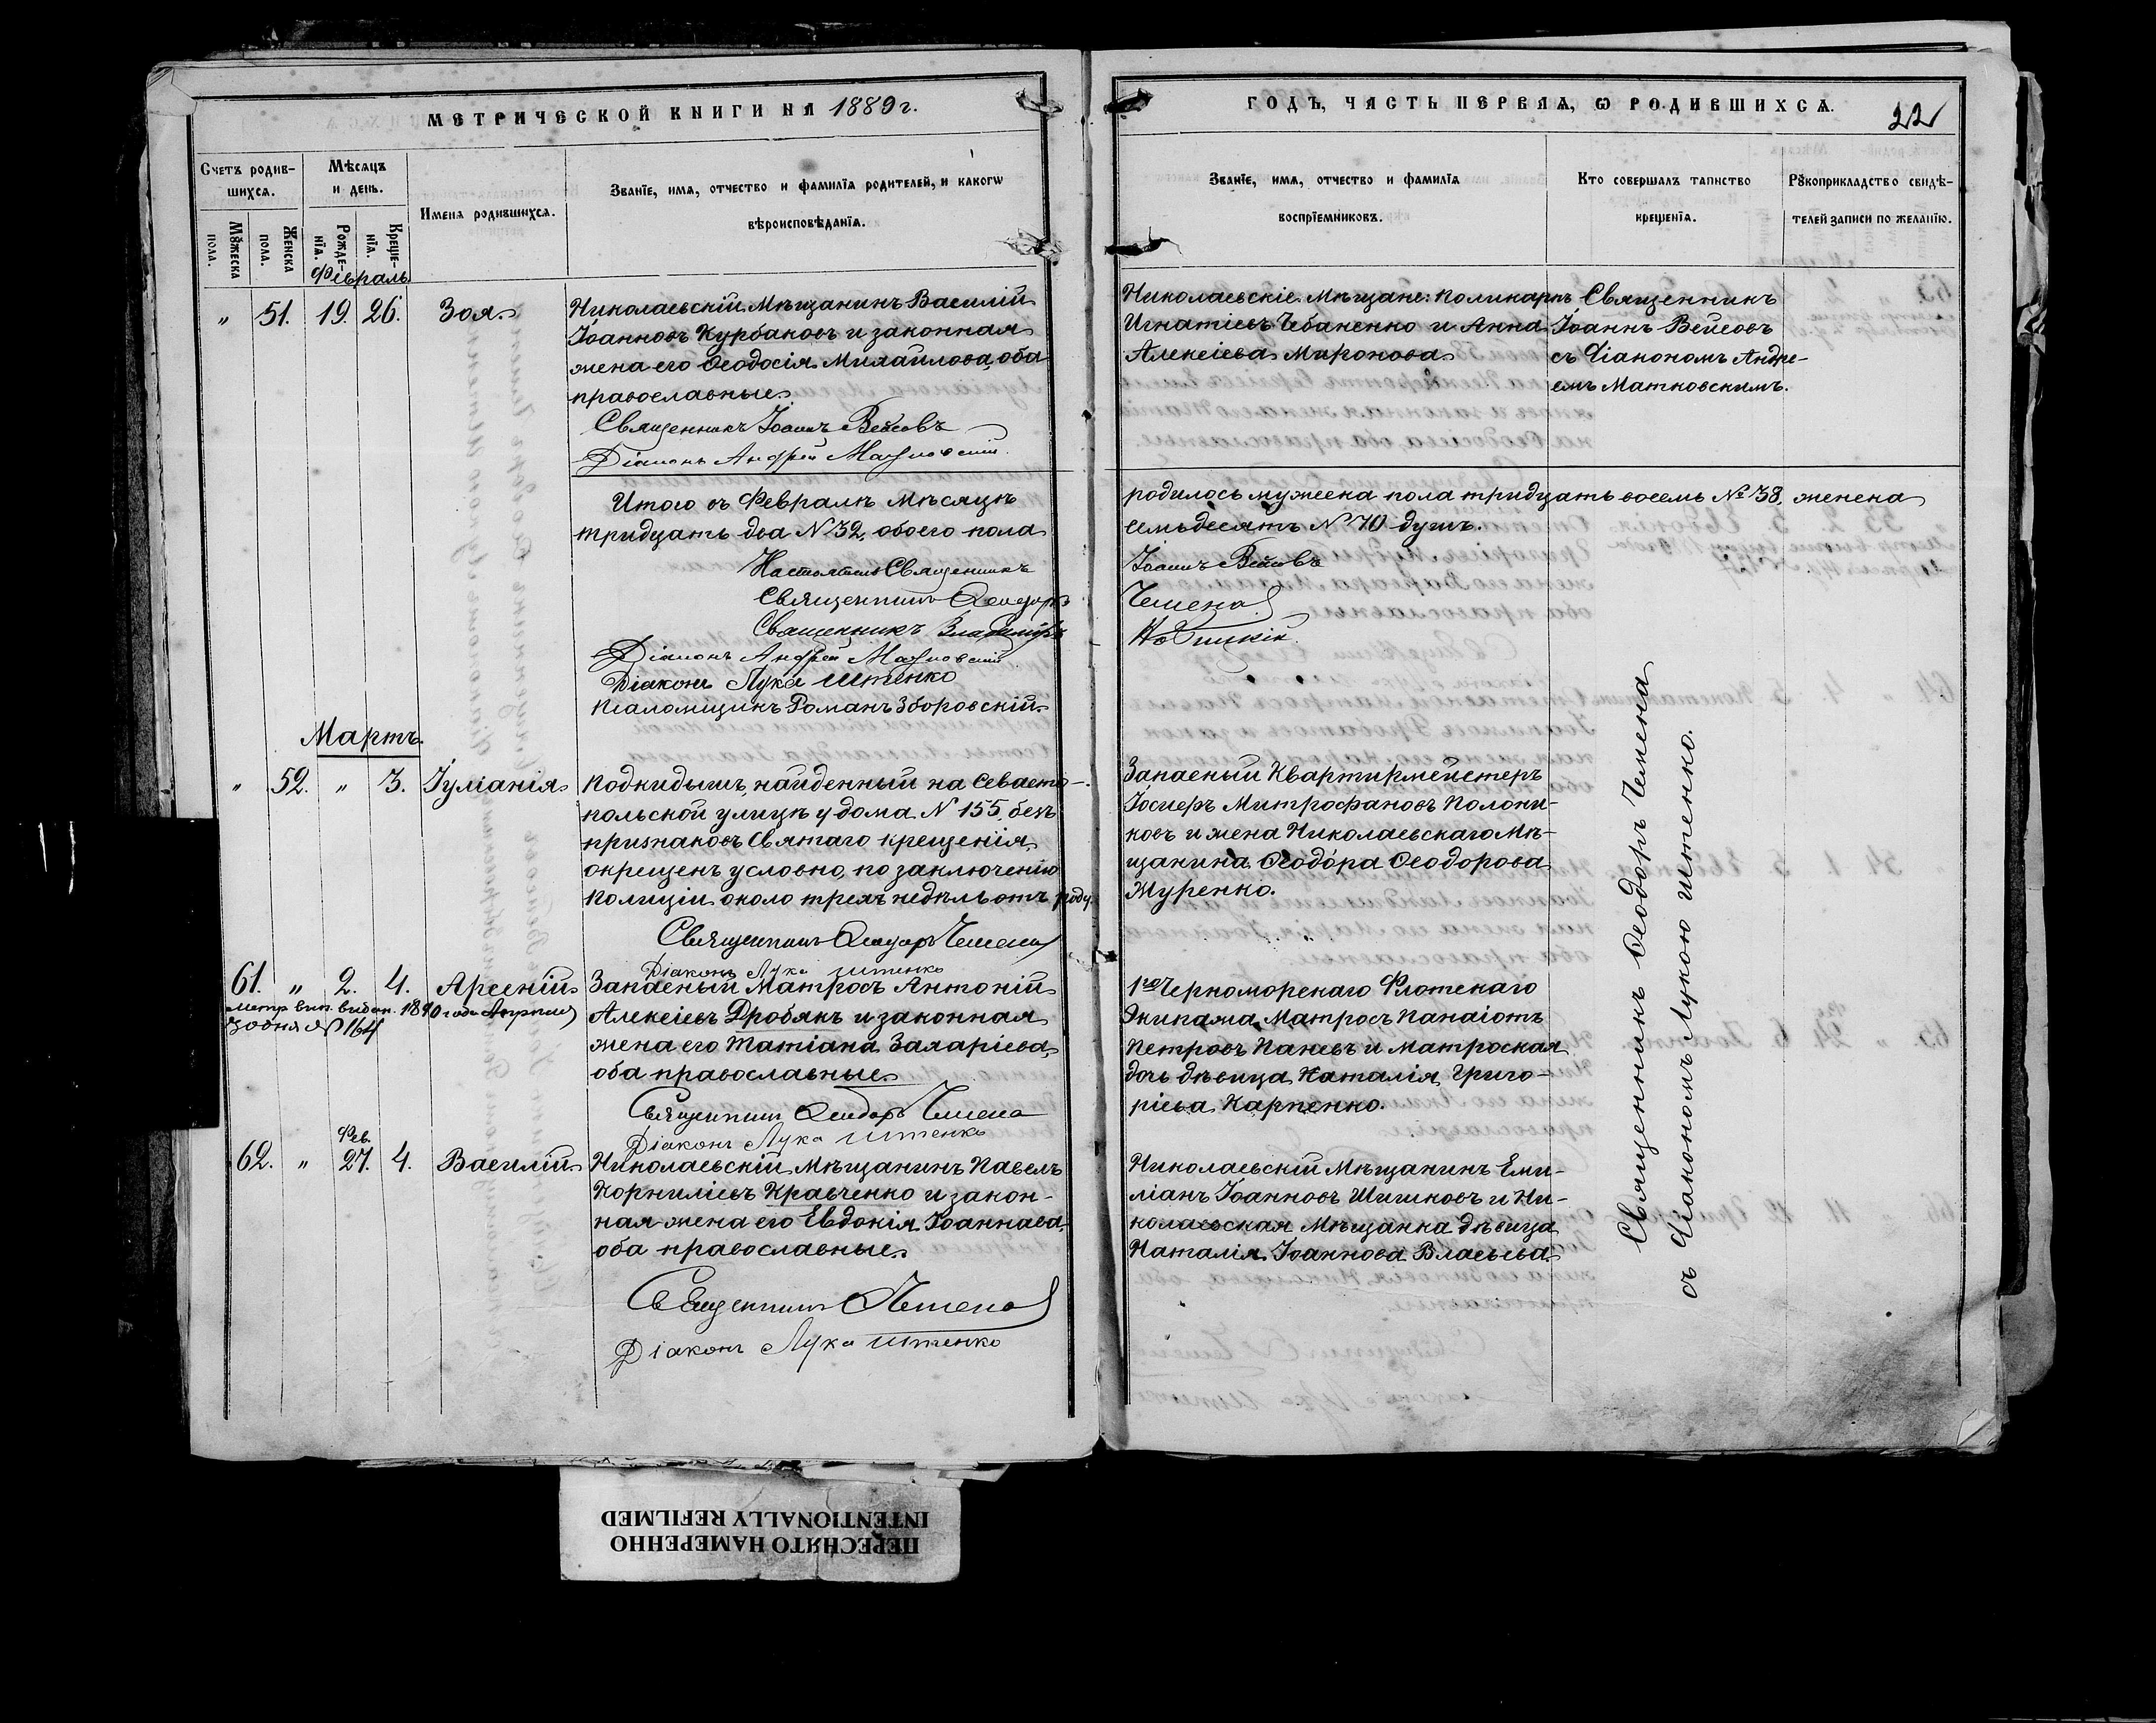 МЕТРИЧЕСКОЙ КНИГИ НА 1889 г.
Счетъ родившихся.
Мѣсяцъ и день.
Имена родившихся.
Званїе, имя, отчество и фамилїя родителей, и какогѡ
вѣроисповѣданїя.
Мꙋжеска пола.
Женска пола.
Рожде-нїя.
Креще-нїя.
Февраль
" 51. 19. 26. Зоя
Николаевскій Мѣщанинъ Василій
Іоанновъ Курбаковъ и законная
жена его Ѳеодосія Михаилова, оба
православные.
Священникъ Іоаннъ Вейсовъ
Діаконъ Андрей Матковскій
Итого въ Февралѣ Мѣсяцѣ
тридцать два N 32, обоего пола
Настоятель Священникъ
Священникъ Ѳеодоръ
Священникъ Владиміръ
Діаконъ Андрей Матковскій
Діаконъ Лука Штенко
Псаломщикъ Романъ Зборовскій
Мартъ.
" 52. " 3. Іуліанія
Подкидышъ, найденный на Севасто-
польской улицѣ у дома N 155, безъ
признаковъ Святаго крещенія,
окрещенъ условно, по заключенію
Полиціи около трехъ недѣль отъ роду.
Священникъ Ѳеодоръ Чемена
Діаконъ Лука Штенко
61. " 2. 4. Арсеній
метр. вып. видан. 1890 года Априля
30 дня N 164
Запасный Матросъ Антоній
Алексіевъ Дробякъ и законная
жена его Татіана Захаріева,
оба православные
Священникъ Ѳеодоръ Чемена
Діаконъ Лука Штенко
Фев.
62. " 27. 4. Василій
Николаевскій Мѣщанинъ Павелъ
Корниліевъ Кравченко и закон-
ная жена его Евдокія Іоаннова,
оба православные.
Священникъ Чемена
Діаконъ Лука Штенко
ГОДЪ, ЧАСТЬ ПЕРВАЯ, Ѡ РОДИВШИХСЯ. 22
Званїе, имя, отчество и фамилїя
воспрїемниковъ.
Кто совершалъ таинство
крещенїя.
Рꙋкоприкладство свидѣ-
телей записи по желанїю.
Николаевскіе Мѣщане: Поликарпъ
Игнатіевъ Чебаненко и Анна
Алексіева Миронова
Священникъ
Іоаннъ Вейсовъ
съ Діакономъ Андре-
емъ Матковскимъ.
родилось мужеска пола тридцать восемь № 38, женска
семьдесятъ N 70 душъ.
Іоаннъ Вейсовъ
Чемена
Запасный Квартирмейстеръ
Іосифъ Митрофановъ Полони-
ковъ и жена Николаевскаго Мѣ-
щанина Ѳеодо́ра Ѳеодорова
Журенко.
1го Черноморскаго Флотскаго
Экипажа Матросъ Панаіотъ
Петровъ Панжевъ и Матроская
дочь дѣвица Наталія Григо-
рієва Карпенко.
Николаевскій Мѣщанинъ Еми-
ліанъ Іоанновъ Шишковъ и Ни-
колаевская Мѣщанка дѣвица
Наталія Іоаннова Власьева
Священникъ Ѳеодоръ Чемена
съ Діакономъ Лукою Штенко.
ПЕРЕСНЯТО НАМЕРЕННО
INTENTIONALLY REFILMED